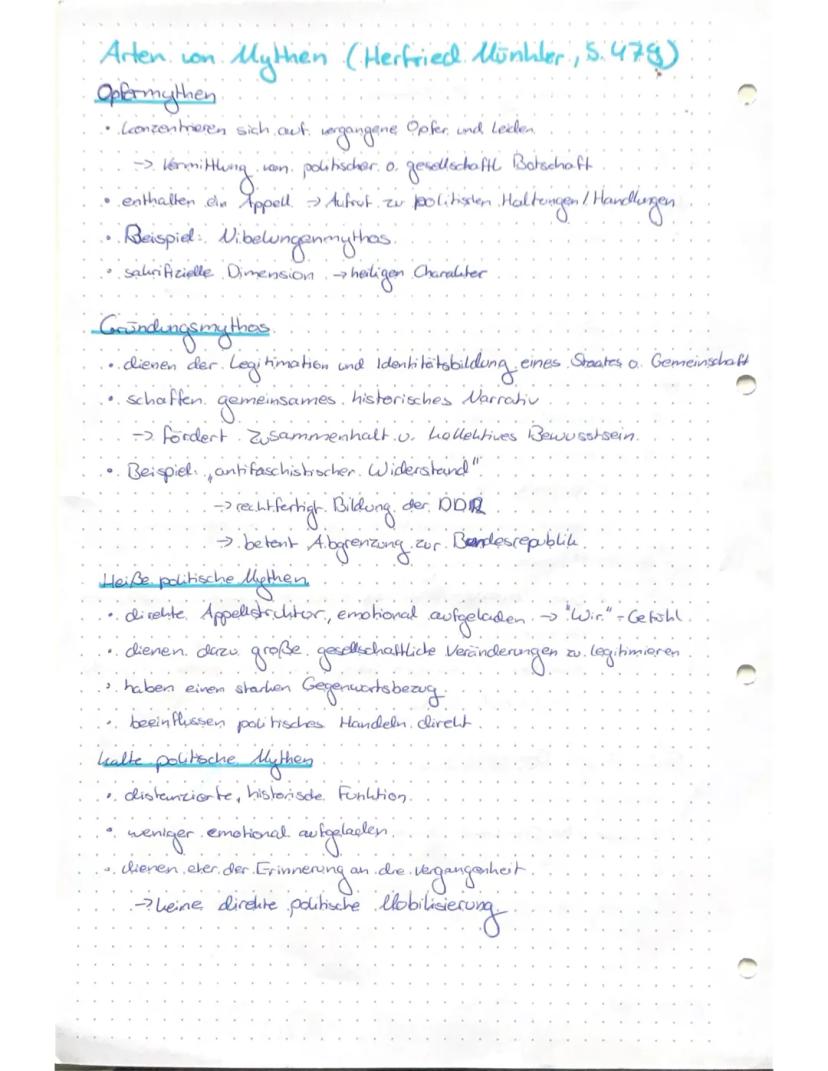 Arten von Mythen (Herfried Münkler, S. 478)
Opfermythen
• konzentrieren sich auf vergangene Opfer und Leiden
-> Vermittlung von politischer o. gesellschaftl Botschaft
• enthalten ein Appell -> Aufruf zu politischen Haltungen/Handlungen
• Beispiel: Nibelungenmythos
• sakrifizielle Dimension -> heiligen Charakter
Gründungsmythos
• dienen der Legitimation und Identitätsbildung eines Staates o. Gemeinschaft
• schaffen gemeinsames historisches Narrativ
-> fördert Zusammenhalt u. kollektives Bewusstsein.
• Beispiel: „antifaschistischer Widerstand"
-> rechtfertigt Bildung der DDR
-> betont Abgrenzung zur Bundesrepublik
Heiße politische Mythen
• direkte Appellstruktur, emotional aufgeladen -> "Wir" - Gefühl
• dienen dazu große gesellschaftliche Veränderungen zu legitimieren
• haben einen starken Gegenwartsbezug
• beeinflussen politisches Handeln direkt
kalte politische Mythen
• distanzierte, historische Funktion
• weniger emotional aufgeladen
• dienen eher der Erinnerung an die Vergangenheit
-> keine direkte politische Mobilisierung